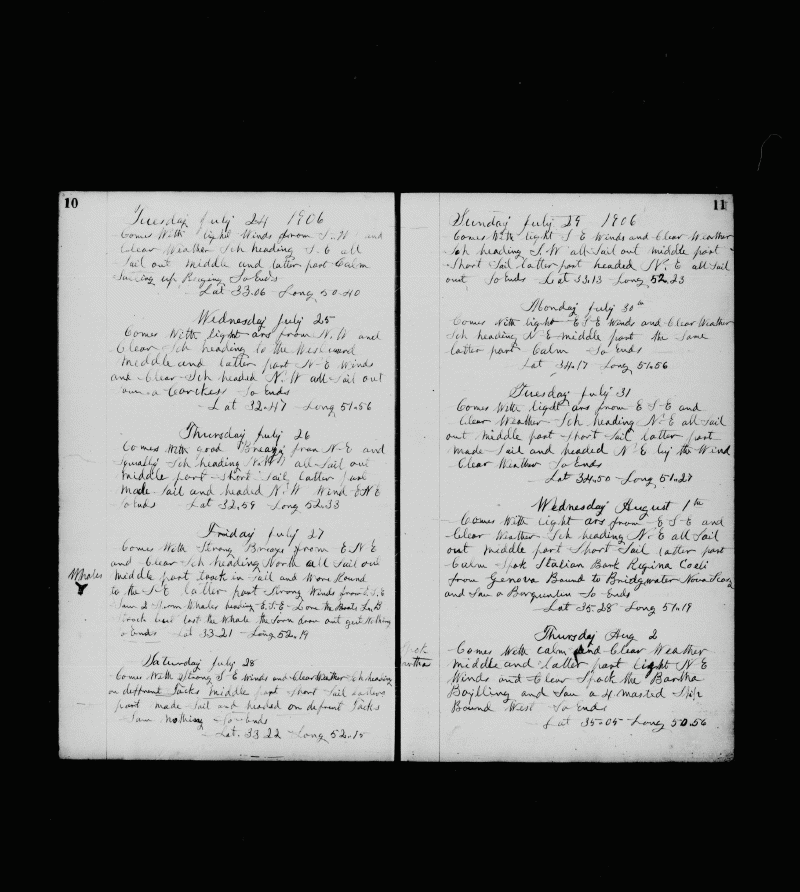 10
Tuesday July 24 1906
Comes With light Winds from S.W and
Clear Weather Sch heading S.E all
Sail out middle and latter part Calm
up So Ends
Lat 33.06 Long 50.40
Wednesday July 25
Comes With light ars from N.W and
Clear Sch heading to the Westward
middle and latter part N-E Winds
and Clear Sch headed N.W all Sail out
So Ends
Lat 32.47 Long 51.56
Thursday July 26
Comes With good from N-E and
Squally Sch heading all Sail out
middle part Short Sail latter part
made Sail and headed N.W Wind ENE
So Ends Lat 32.59 Long 52.33
Friday July 27
Comes With Strong from E N E
and Clear Sch heading North all Sail out
Whales
middle part took in Sail and Wore Round
to the S-E latter part Strong Winds from E.S.E
Saw 2 Sperm Whales heading E.S.E the Boats
Struck but lost the Whale the Iron out got Nothing
So Ends Lat 33.21 Long 52.19
Saturday July 28
Comes With Strong S E Winds and Clear Weather Sch heading
on diffrent Tacks middle part Short Sail
part made Sail and headed on defrent Tacks
Saw nothing So Ends
Lat. 33.22 Long 52.15
11
Sunday July 29 1906
Comes With light S E Winds and Clear Weather
Sch heading S.W all Sail out middle part
Short Sail latter part headed N.E all Sail
out So Ends Lat 33.13 Long 52.23
Monday July 30th
Comes With light E S E Winds and Clear Weather
Sch heading N-E middle part the Same
latter part Calm So Ends
Lat 34.17 Long 51.56
Tuesday July 31
Comes With light ars from E S-E and
Clear Weather Sch heading N.E all Sail
out middle part Short Sail latter part
made Sail and headed N E by the Wind
Clear Weather So Ends
Lat 34.50 Long 51.27
Wednesday August 1th
Comes With light ars from E S E and
Clear Weather Sch heading N.E all Sail
out middle part Short Sail latter part
Calm Spok Italian Bark Regina Coeli
from Genova Bound to Bridgwater Nova Scotia
and Saw a So Ends
Lat 35.28 Long 51.19
Thursday Aug 2
Spok
Comes With Calm and Clear Weather
middle and latter part light N E
Winds and Clear Spock the Bartha
and Saw a 4 masted Ship
Bound West So Ends
Lat 35.05 Long 50.56